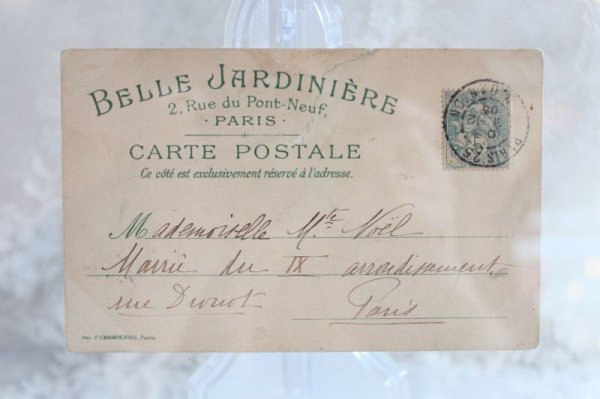 BELLE JARDINIÈRE
2, Rue du Pont-Neuf,
· PARIS ·
CARTE POSTALE
Ce côté est exclusivement réservé à l'adresse.
Mademoiselle Mte Noël
Mairie du IX arrondissement
rue Drouot Paris
Imp. F. CHAMPENOIS, Paris.
PARIS 25